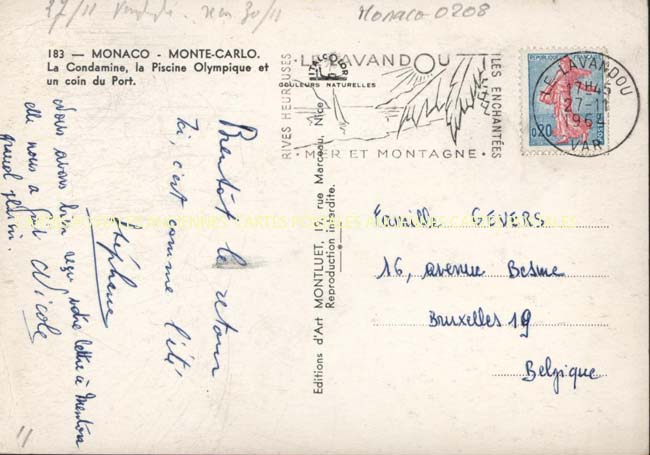 27/11 Vendredi ren 30/11
Monaco 0208
183 — MONACO - MONTE-CARLO.
La Condamine, la Piscine Olympique et
un coin du Port.
ITALCOLOR
COULEURS NATURELLES
RIVES HEUREUSES
LE LAVANDOU
ILES ENCHANTÉES
MER ET MONTAGNE
LE LAVANDOU
17H45
27-11
VAR
0,20
Bientôt le retour
Ici, c'est comme l'été
Stéphane
Nous avons bien reçu votre lettre à Menton
elle nous a fait
grand plaisir.
Nicole
Editions d'Art MONTLUET, 12, rue Marceau, Nice
Reproduction Interdite.
Famille GEVERS
16, avenue Besme
Bruxelles 19
Belgique
CARTES POSTALES